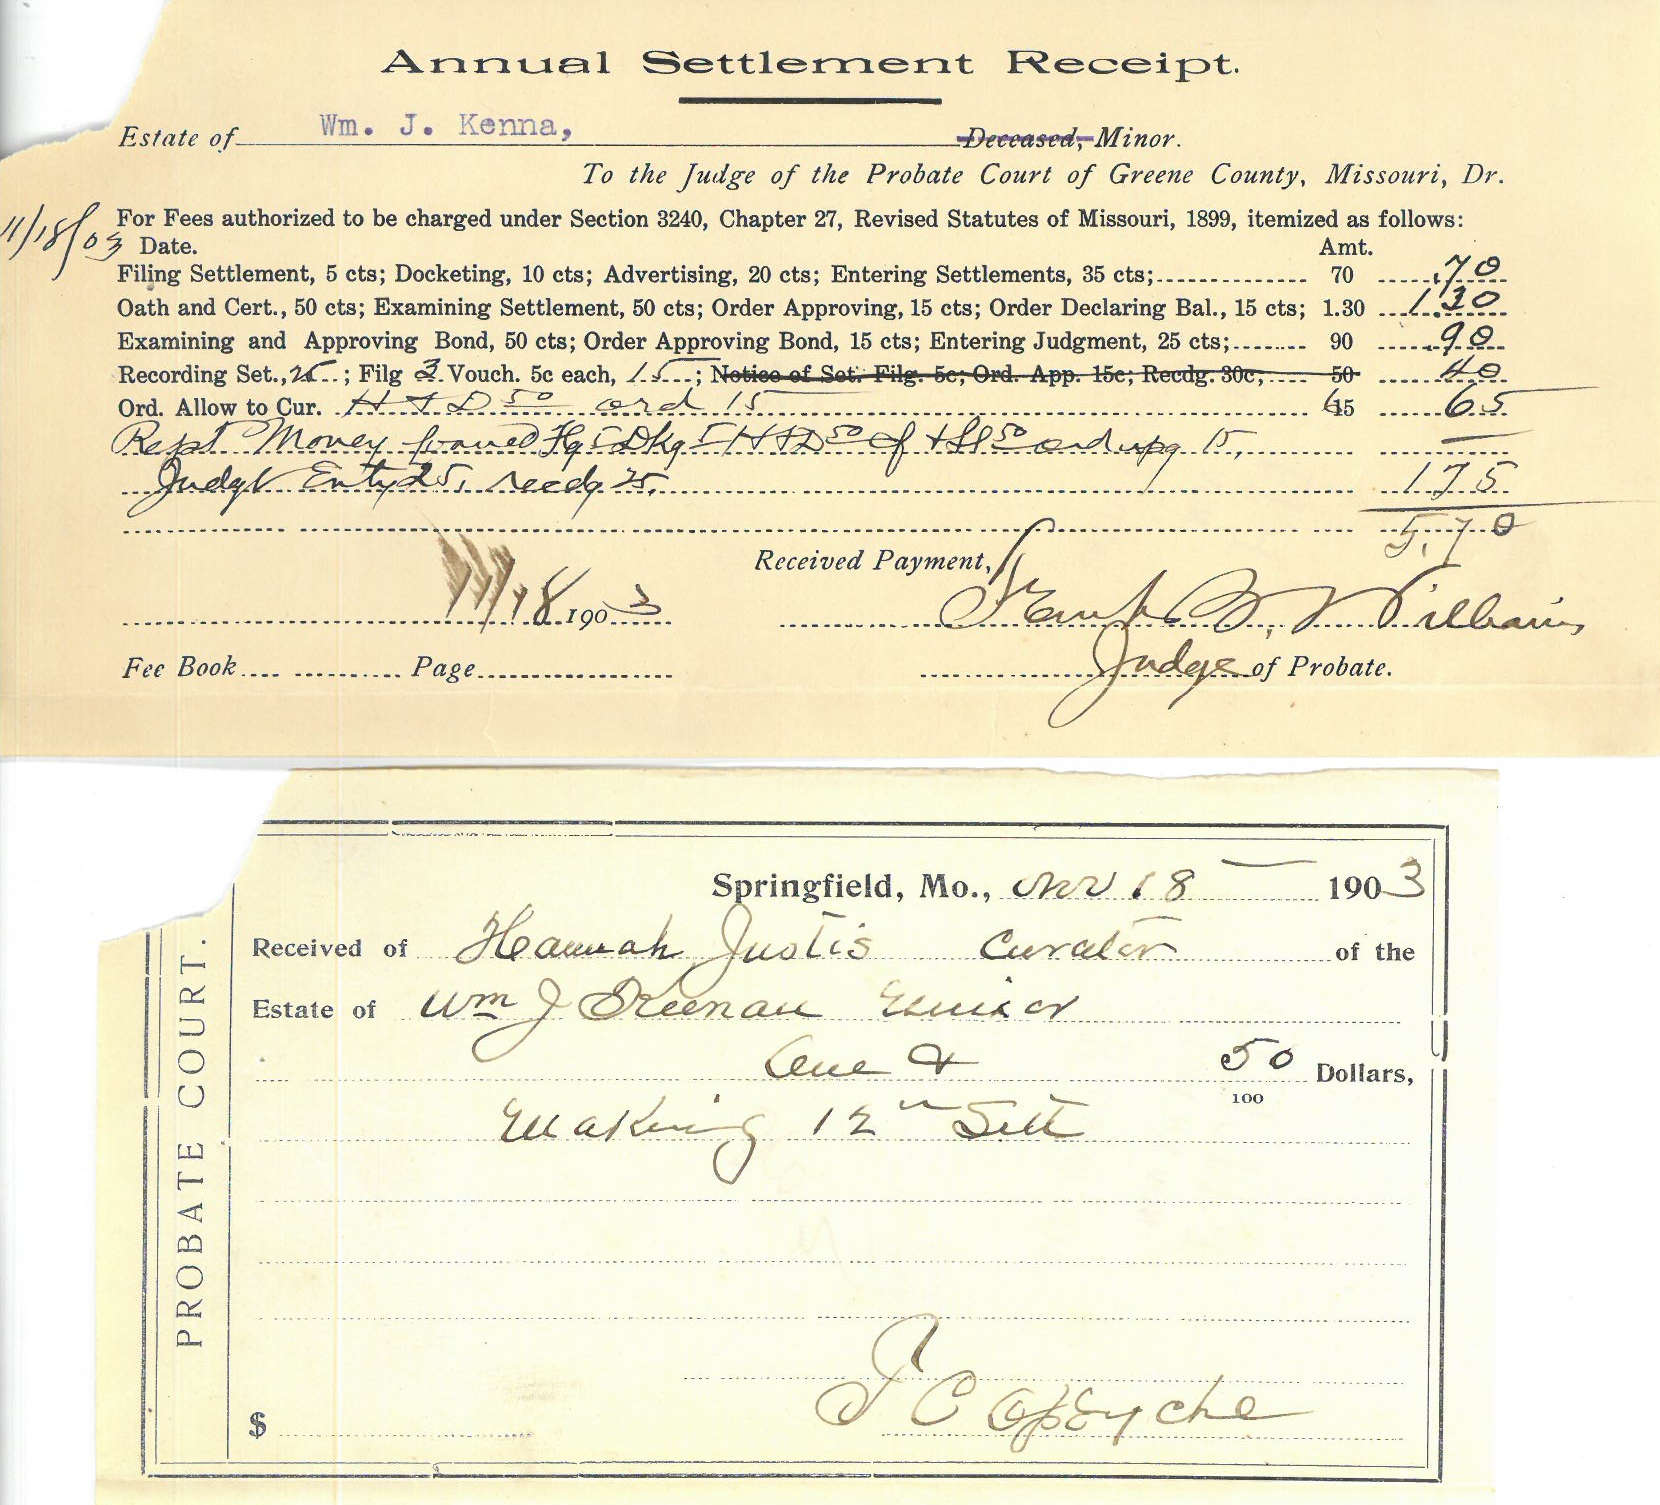 Annual Settlement Receipt.
Estate of Wm. J. Kenna, Deceased, Minor.
To the Judge of the Probate Court of Greene County, Missouri, Dr.
For Fees authorized to be charged under Section 3240, Chapter 27, Revised Statutes of Missouri, 1899, itemized as follows:
11/18/03 Date. Amt.
Filing Settlement, 5 cts; Docketing, 10 cts; Advertising, 20 cts; Entering Settlements, 35 cts; 70 .70
Oath and Cert., 50 cts; Examining Settlement, 50 cts; Order Approving, 15 cts; Order Declaring Bal., 15 cts; 1.30 1.30
Examining and Approving Bond, 50 cts; Order Approving Bond, 15 cts; Entering Judgment, 25 cts; 90 .90
Recording Set., 25 ; Filg 3 Vouch. 5c each, 15 ; Notice of Set. Filg. 5c; Ord. App. 15c; Recdg. 30c, 50 40
Ord. Allow to Cur. H & D 50 ord 15 65
Rept Money loaned Flg 5 Dkg 5 H & D 50 50 ord 15,
Judgt Enty 25, recdg 25. 175
5.70
Received Payment,
11/18 1903 Frank B. Williams
Fee Book Page Judge of Probate.
PROBATE COURT.
Springfield, Mo., Nov 18 1903
Received of Hannah Justis Curator of the
Estate of Wm J Keenan minor
One & 50/100 Dollars,
Making 12" Sett
$